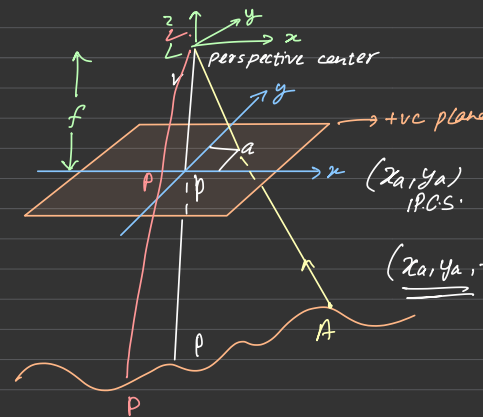 z
y
L
x
perspective center
f
y
→ +ve plane
a
x
P
p
(xa, ya)
I.P.C.S.
(xa, ya, -
A
p
P